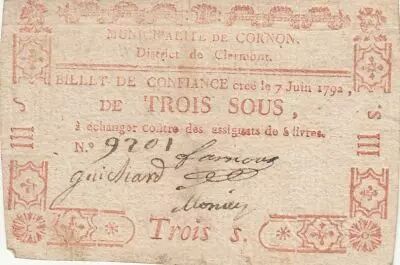 MUNICIPALITÉ DE CORNON.
District de Clermont.
BILLET DE CONFIANCE créé le 7 Juin 1792,
DE TROIS SOUS,
à échanger contre des assignats de 5 livres.
N.º 9201
guichard
III s.
III s.
Trois s.